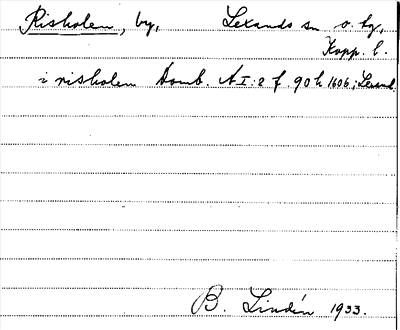 Risholen, by, Leksands sn o. tg,
Kopp. l.
i risholem Domb. A I:2 f. 90 h 1606; Lesand.
B. Lindén 1933.